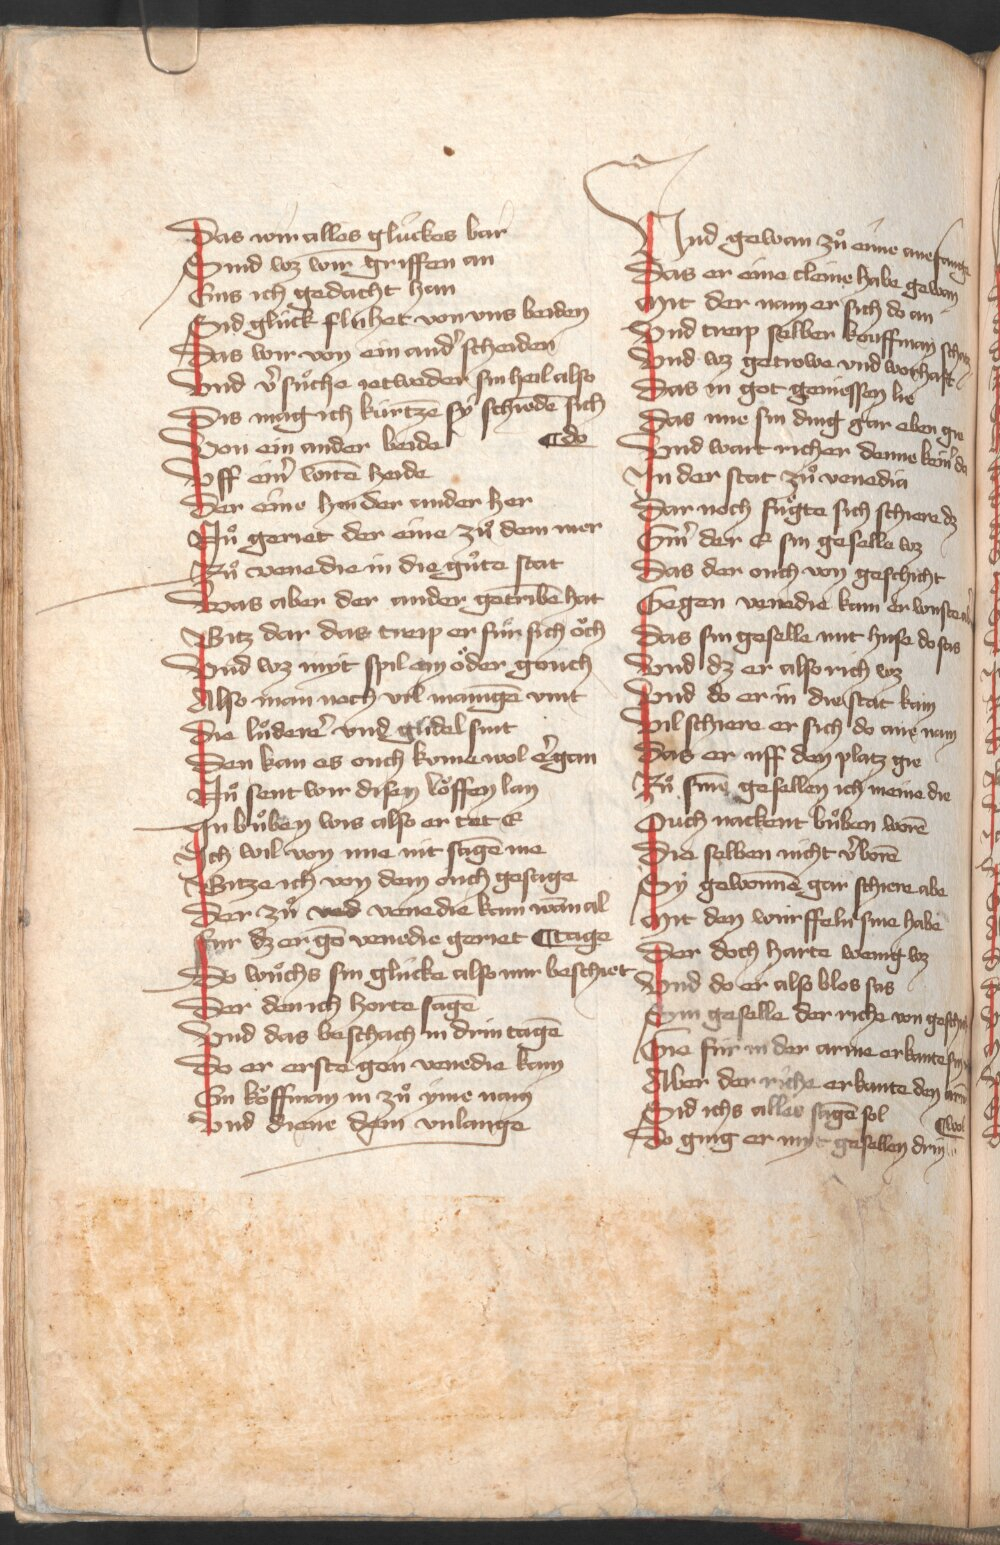 Das wir alles glückes bar
Sind wz wir griffen an
Sus ich gedacht han
Sid glück fluhet von vns beiden
Das wir von ein and' scheiden
Vnd v'sůche ietweder sin heil also
Dis mag ich kürtzē sy schiedē sich
Von ein ander beide ¶do
Vff ein' witē heide
Der eine hin der ander her
Nů geriet der eine zů dem mer
Zů venedie in die gůte stat
Was aber der ander getribē hat
Bitz dar das treip er für sich och
Vnd wz myt spil ein öder gouch
Also man noch vil manigē vint
Die lůderer' vnd gudel sint
Den kan es ouch kume wol e'gan
Nů sent wir disen löffen lan
In bůben wis also er tet E
Ich wil von ime nit sagē me
Bitze ich von dem ouch gesage
Der zů ved venedie kam wān al
für dz er gē venedie geriet ¶tage
Do wůchs sin glücke also mir beschiet
Der den ich horte sagē
Vnd das beschach in drin tagē
Do er erste gen venedie kam
Ein köffman in zů yme nam
Vnd diene dem vnlange
Vnd gewan zů eime anefange
Das er eine cleine habe gewan
Mit der nam er sich do an
Vnd treip selber kouffmanschatz
Vnd wz getrowe vnd worhaft
Das in got geniessen lie
Das ime sin ding gar eben gie
Vnd wart richer denne kein' do
In der stat zů venedia
Dar noch fůgte sich schiere dz
Ein' der E sin geselle wz
Das der ouch von geschicht
Gegen venedie kam er wuste
Das sin geselle mit huse do sas
Vnd dz er also rich wz
Vnd do er in die stat kam
Vil schiere er sich do ane nam
Das er uff den platz gie
Zů sinē gesellen ich meine die
Ouch nackent bůben worē
Die selben nicht v'borē
Sy gewonnē gar schiere abe
Mit den würffeln sine habe
Der doch harte wenig wz
Vnd do er also blos sas
Sym geselle der riche von geschicht
Gie für in der arme erkante sin
Aber der riche erkante den armē
Sid ichs alles sagē sol ¶wol
Do ging er myt gesellen drin